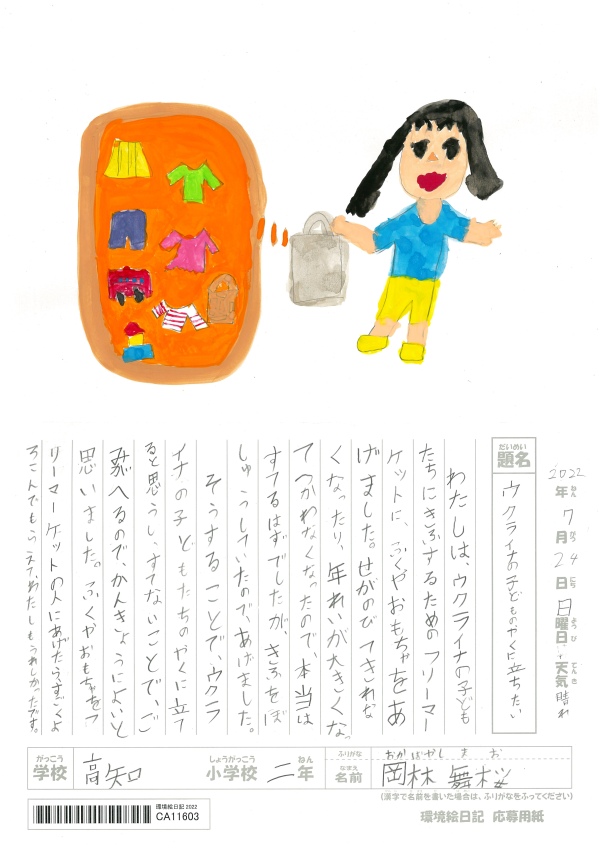 2022年7月24日日曜日・天気晴れ
ねん がつ にち ようび てんき
だいめい
題名
ウクライナの子どものやくに立ちたい
わたしは、ウクライナの子ども
たちにきふするためのフリーマー
ケットに、ふくやおもちゃをあ
げました。せがのびてきれな
くなったり、年れいが大きくなっ
てつかわなくなったので、本当は
すてるはずでしたが、きふをぼ
しゅうしていたので、あげました。
そうすることで、ウクラ
イナの子どもたちのやくに立て
ると思うし、すてないことで、ご
みがへるので、かんきょうによいと
思いました。ふくやおもちゃをフ
リーマーケットの人にあげたら、すごくよ
ろこんでもらえて、わたしもうれしかったです。
がっこう
学校
高知
しょうがっこう
小学校
二
ねん
年
ふりがな
おかばやし まお
なまえ
名前
岡林 舞桜
(漢字で名前を書いた場合は、ふりがなをふってください)
環境絵日記 2022
CA11603
環境絵日記 応募用紙